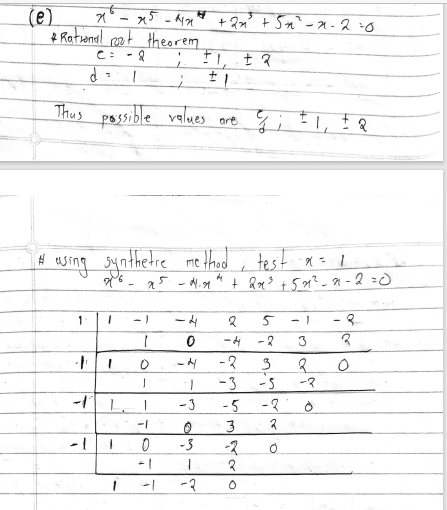 (e) x⁶ - x⁵ - 4x⁴ + 2x³ + 5x² - x - 2 = 0
# Rational root theorem
c = - 2 ; ± 1, ± 2
d = 1 ; ± 1
Thus possible values are c/d ; ± 1, ± 2
# using synthetic method, test x = 1
x⁶ - x⁵ - 4x⁴ + 2x³ + 5x² - x - 2 = 0
1 | 1 -1 -4 2 5 -1 -2
1 0 -4 -2 3 2
1 | 1 0 -4 -2 3 2 0
1 1 -3 -5 -2
-1 | 1 1 -3 -5 -2 0
-1 0 3 2
-1 | 1 0 -3 -2 0
-1 1 2
1 -1 -2 0